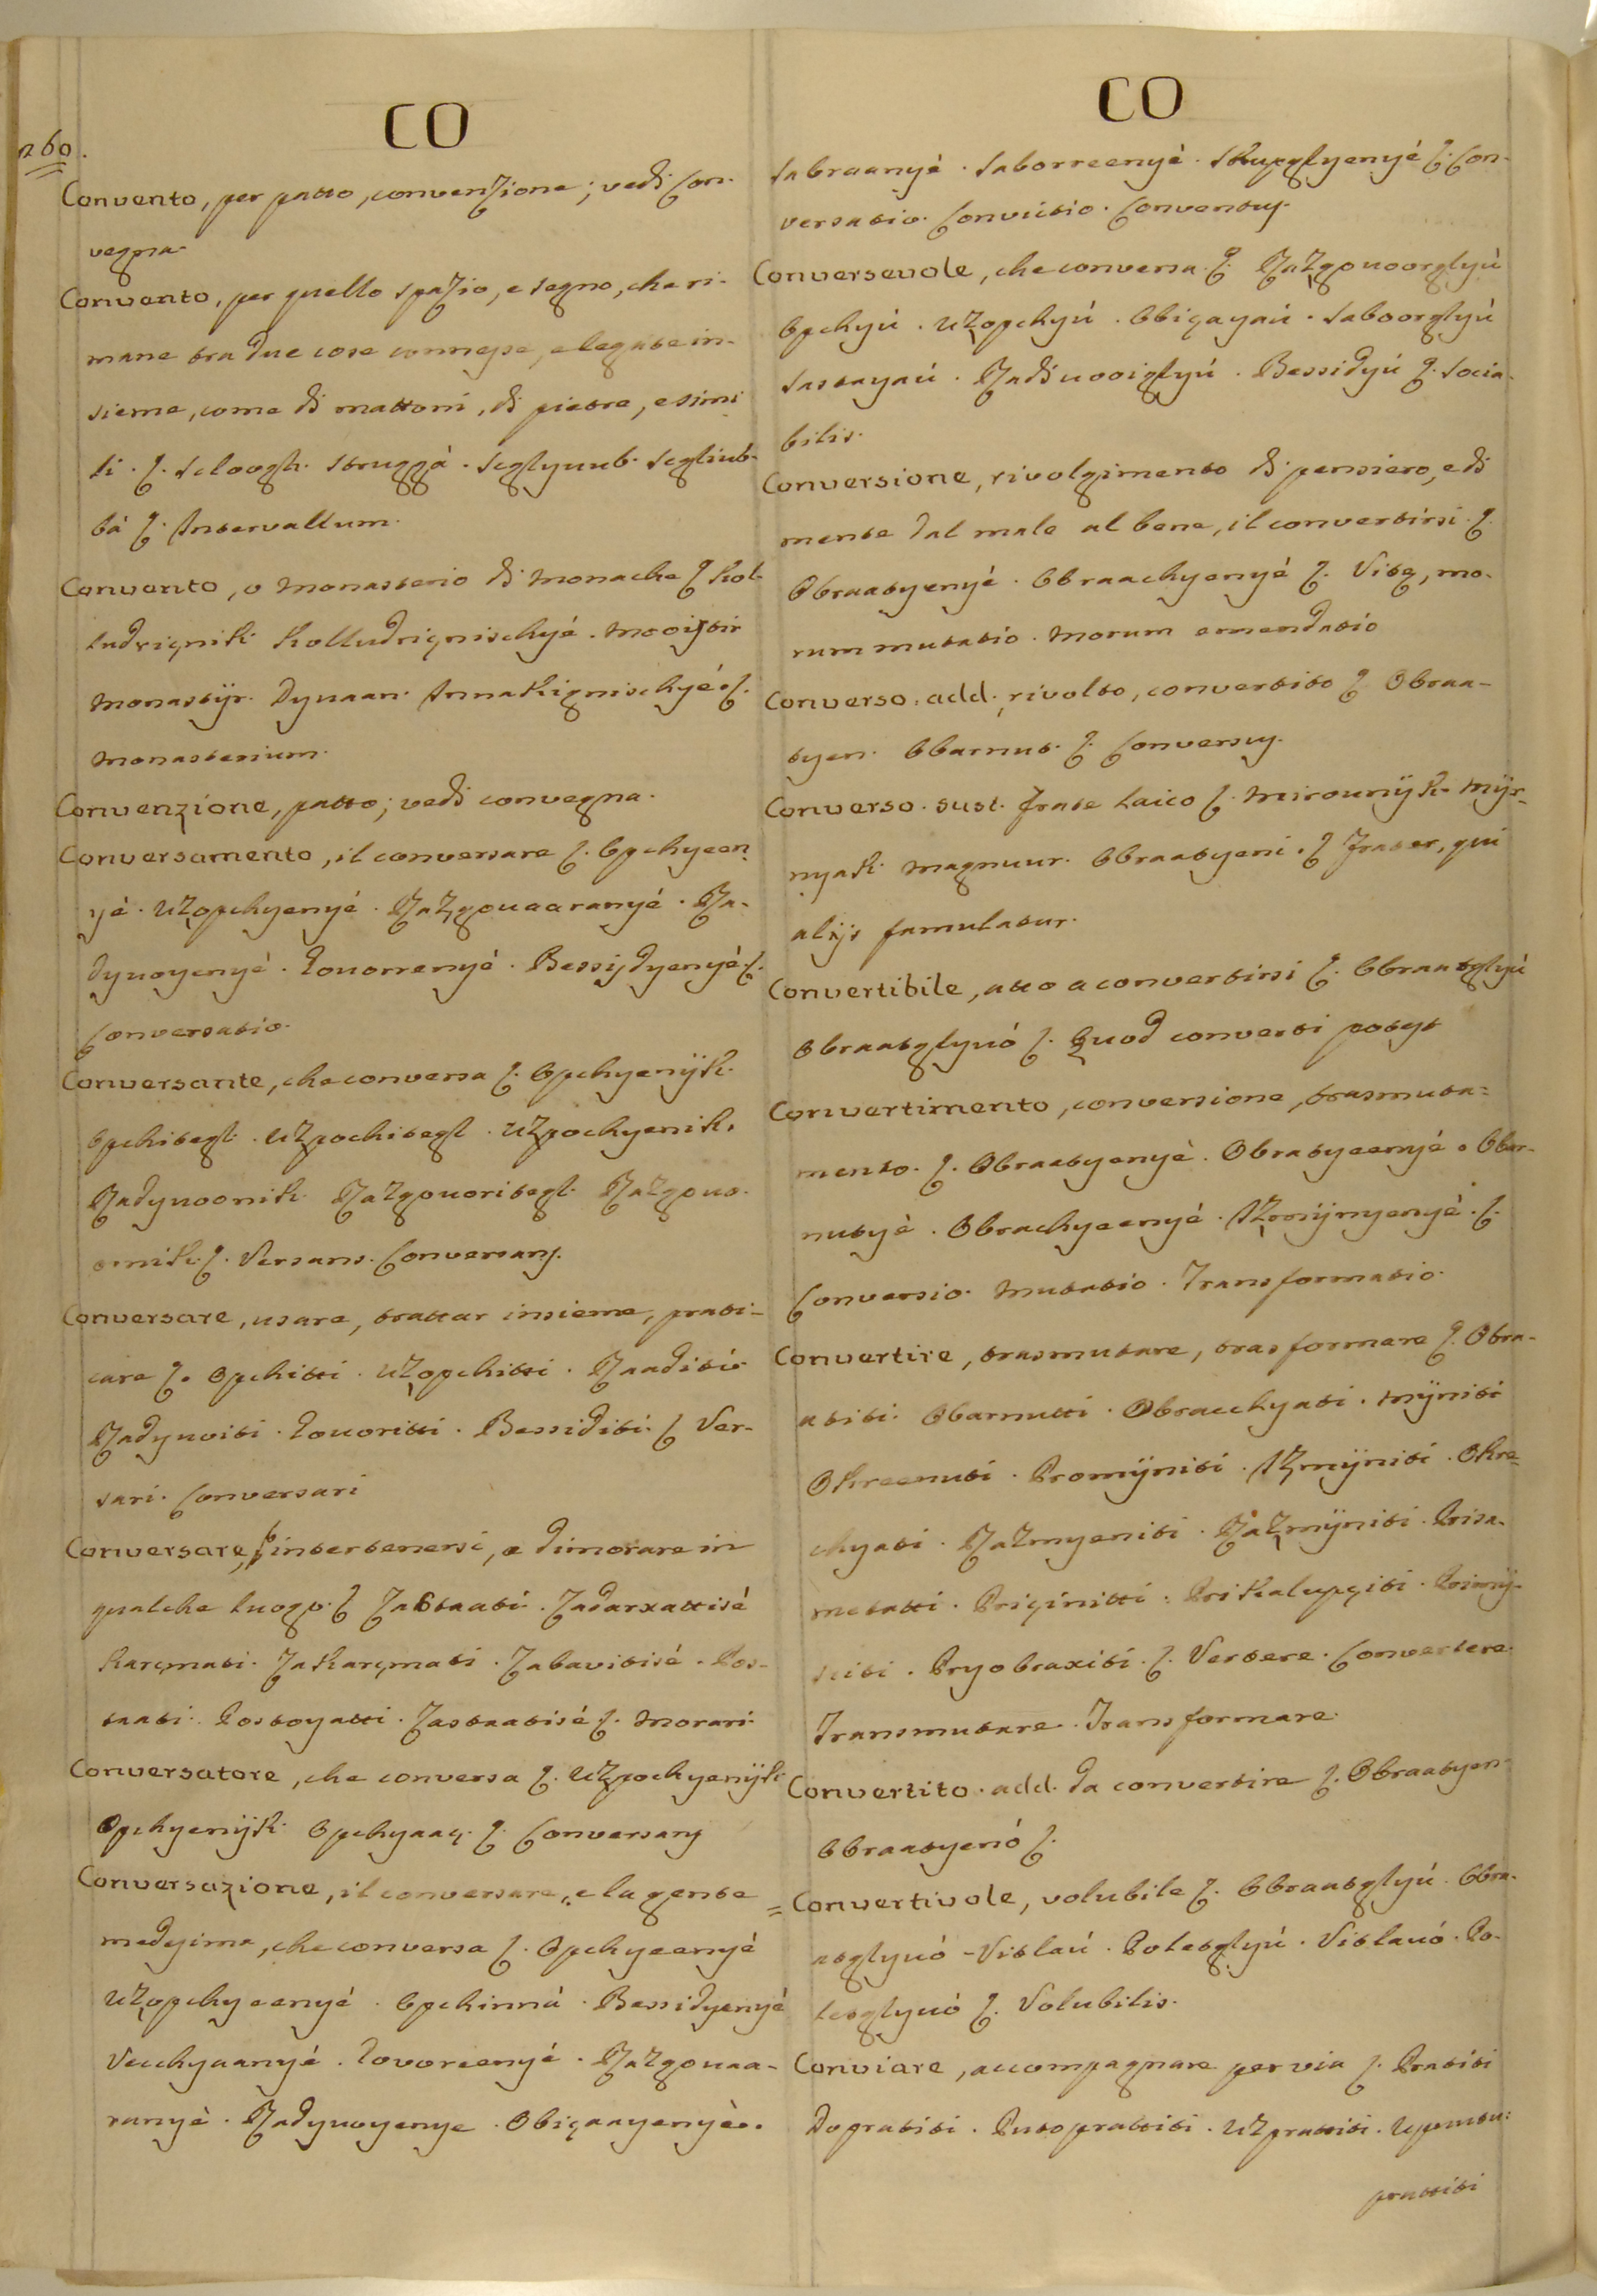 CO
260.
Convento, per patto, convenzione; vedi Con-
vegna.
Convento, per quello spazio, e segno, che ri-
mane tra due cose connesse, e legate in-
sieme, come di mattoni, di pietre, e simi
li. ſ. Scloogh. Struggà. Seglyuub. Segliub-
bà ſ. Intervallum.
Convento, o Monasterio di Monache ſ Kol-
ludriçnik. Kolludriçnischyé. Mooistir
Monastijr. Dyuaan. Innakignischyé. ſ.
Monasterium.
Convenzione, patto; vedi convegna.
Conversamento, il conversare ſ. Opchyeen-
yé. Uzopchyenyé. Razgouaaranyé. Ra-
dyuoyenyé. Gouorrenyé. Bessijdyenyé. ſ.
Conversatio.
Conversante, che conversa ſ. Opchyenijk.
Opchitegl. Uzpochitegl. Uzpochyenik.
Radyuoonik. Razgouoritegl. Razgouo-
ornik. ſ. Versans. Conversans.
Conversare, usare, trattar insieme, prati-
care ſ. Opchitti. Uzopchitti. Raaditi.
Radyuoiti. Gouoritti. Bessiditi. ſ Ver-
sari. Conversari
Conversare, p intertenersi, e dimorare in
qualche luogo. ſ Zabtaati. Zadarxattisé
Karçmati. Zakarçmati. Zabavitisé. Pos-
taati. Postoyatti. Zastaatisé ſ. Morari.
Conversatore, che conversa ſ. Uzpochyenijk
Opchyenijk. Opchyaaç. ſ. Conversans
Conversazione, il conversare, e la gente
medyima, che conversa ſ. Opchyeenyé
Uzopchyeenyé. Opchinnà. Bessidyenyé
Vecchyaanyé. Govoreenyé. Razgouaa-
ranyé. Radyuoyenye. Obiçaayenyé.
CO
Sabraanyé. Saborreenyé. Skupglyenyé ſ. Con-
versatio. Convictio. Conventus.
Conversevole, che conversa. ſ. Razgouoorglyù
Opchyú. Uzopchyú. Obiçayaú. Saboorglyú
Sastayaú. Radiuooiglyú. Bessidyú ſ. Socia-
bilis.
Conversione, rivolgimento di pensiero, e di
mente dal male al bene, il convertirsi. ſ.
Obraatyenyé. Obraachyenyé ſ. Vitę, mo-
rum mutatio. Morum emendatio
Converso. add. rivolto, convertito ſ Obraa-
tyen. Obarnut. ſ. Conversus.
Converso. sust. Frate Laico ſ. Mirounijk. Mijr-
nyak. Magnuur. Obraatyeni. ſ Frater, qui
alijs famulatur.
Convertibile, atto a convertirsi ſ. Obraatglyú
Obraatglyuó ſ. Quod converti potest
Convertimento, conversione, trasmuta-
mento. ſ. Obraatyenyé. Obratyeenyé. Obar-
nutyé. Obrachyeenyé. Izmijnyenyé. ſ.
Conversio. Mutatio. Transformatio.
Convertire, trasmutare, trasformare ſ. Obra-
atiti. Obarnutti. Obracchyati. Mijniti
Okreenuti. Promijniti. Izmijniti. Okre-
chyati. Razmyeniti. Razmijniti. Prisa-
metatti. Priçinitti. Prikalupgiti. Primij-
sciti. Pryobraxiti. ſ. Vertere. Convertere.
Transmutare. Transformare.
Convertito. add. da convertire ſ. Obraatyen
Obraatyenó ſ.
Convertivole, volubile ſ. Obraatglyú. Obra-
atglyuó - Vitlaú. Poletglyú. Vitlauó. Po-
letglyuó ſ. Volubilis.
Conviare, accompagnare per via ſ. Pratiti
Dopratiti. Putopratiti. Uzpratiti. Uputu:
pratiti